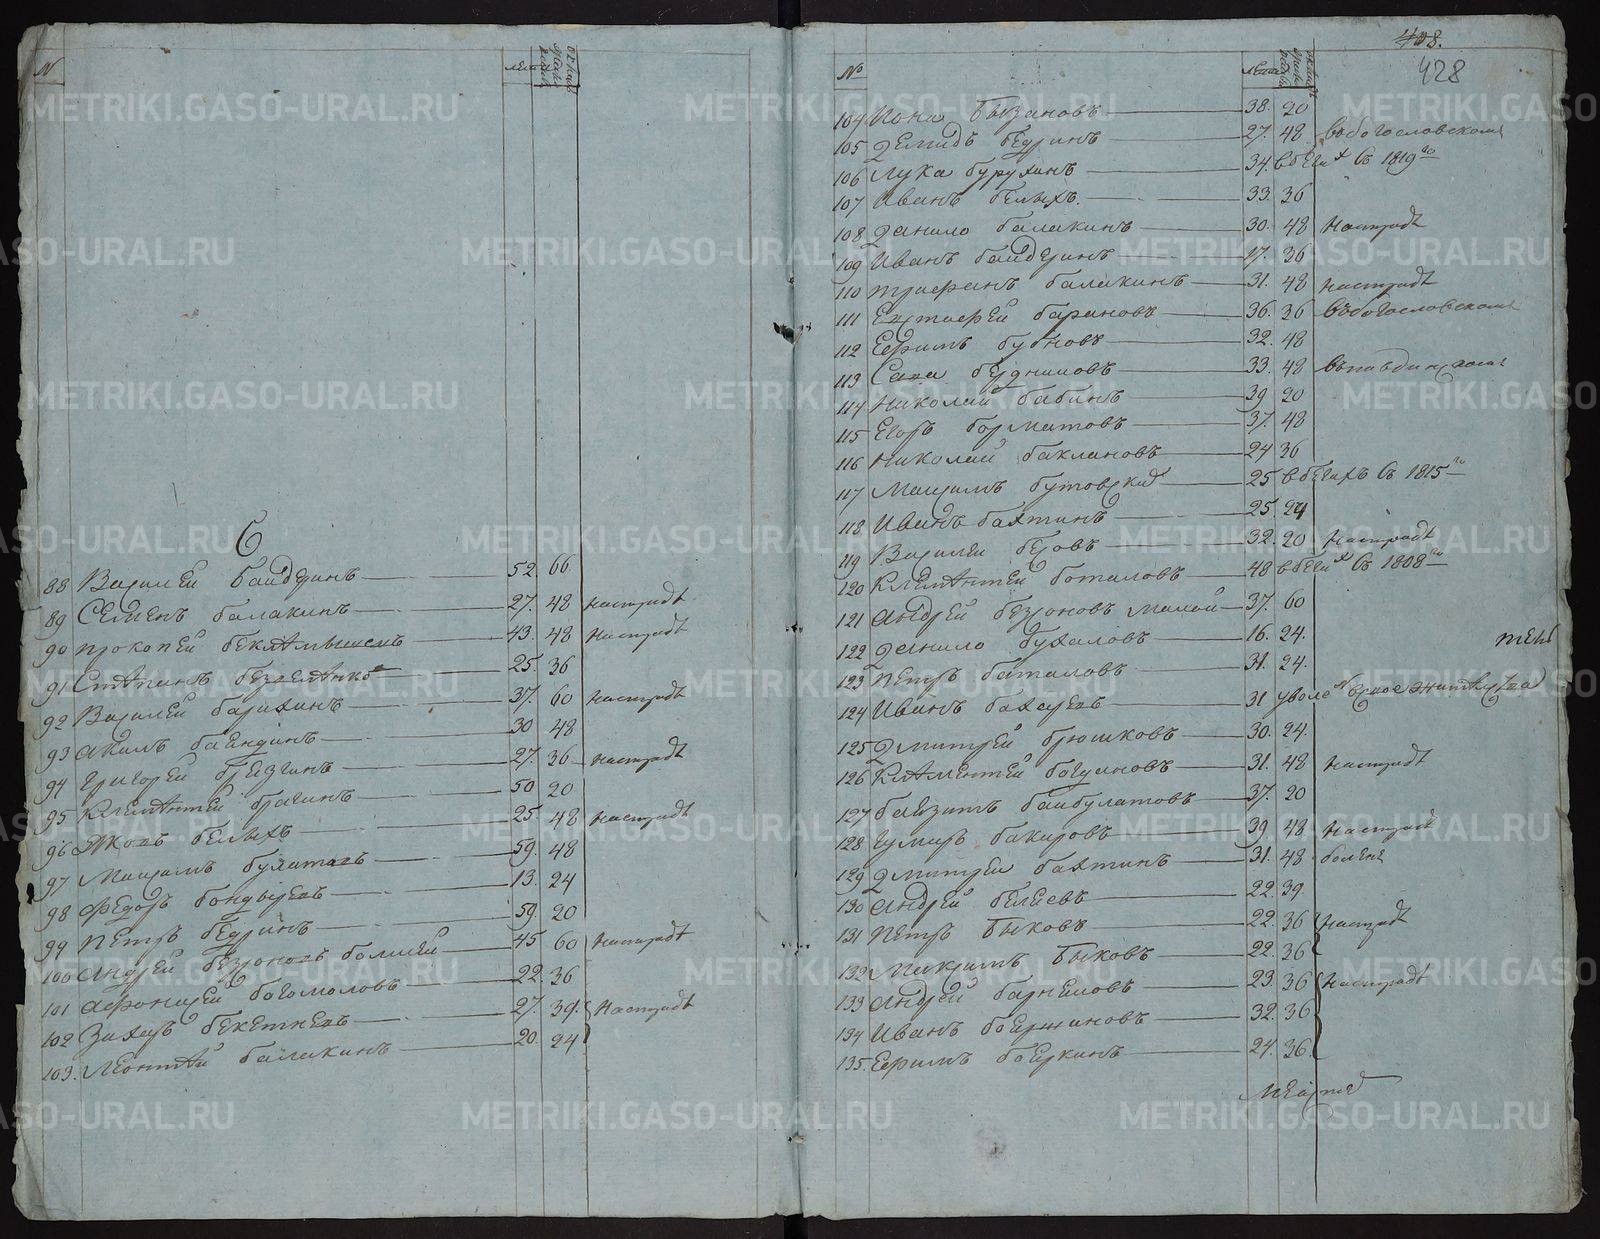 № лета
Б
88 Василей Байдеринъ 52. 66
89 Семенъ Балакинъ 27. 48 настрадѣ
90 Прокопей 43. 48 настрадѣ
91 Степанъ 25. 36
92 Василей Барихинъ 37. 60 настрадѣ
93 Акимъ 30 48
94 Григорей Брезгинъ 27. 36 настрадѣ
95 Клементей Брагинъ 50 20
96 Яковъ Белыхъ 25. 48 настрадѣ
97 Максимъ Булатовъ 59. 48
98 Федоръ Бондыревъ 13. 24
99 Петръ Бедринъ 59. 20
100 Андрей Безроновъ болшей 45 60 настрадѣ
101 Афонасей Богомоловъ 22. 36
102 Захаръ Бекетневъ 27. 39. настрадѣ
103. Леонтей Балакинъ 20. 24
408.
428
№ лета
104 Иона Бызановъ 38. 20
105 Демидъ Бедринъ 27. 48 въбогословскомъ
106 Лука Бурухинъ 34. вбегах съ 1819го
107 Иванъ Белыхъ. 33. 36
108 Данило Балакинъ 30. 48 настрадѣ
109 Иванъ Байдеринъ 17. 36
110 Трофимъ Балакинъ 31. 48 настрадѣ
111 Евстафей Барановъ 36. 36 въбогословскомъ
112 Ефимъ Бубновъ 32. 48
113 Сава 33. 48 въпавдинскомъ
114 Николай Бабинъ 39 20
115 Егоръ Борматовъ 37. 48
116 Николай Баклановъ 24 36
117 Максимъ Бутовской 25 вбегахъ съ 1815го
118 Иванъ Бахтинъ 25. 24
119 Василей 32. 20 настрадѣ
120 Клементей Боталовъ 48 вбегах съ 1808го
121 Андрей Безроновъ малой 37. 60
122 Данило Бухаловъ 16. 24.
тень
123 Петръ Баталовъ 31. 24.
124 Иванъ Бахаревъ 31
125 Дмитрей Брюшковъ 30. 24.
126 Клементей Богдановъ 31. 48 настрадѣ
127 Баязитъ Байбулатовъ 37. 20
128 Гумаръ Бакировъ 39 48 настрадѣ
129 Дмитрей Бахтинъ 31. 48 боленъ
130 Андрей Белаевъ 22. 39.
131 Петръ Быковъ 22. 36 настрадѣ
132 Максимъ Быковъ 22. 36
133 Андрей Барнеловъ 23. 36 настрадѣ
134 Иванъ Бояршиновъ 32. 36
135. Ефимъ Бояркинъ 24. 36